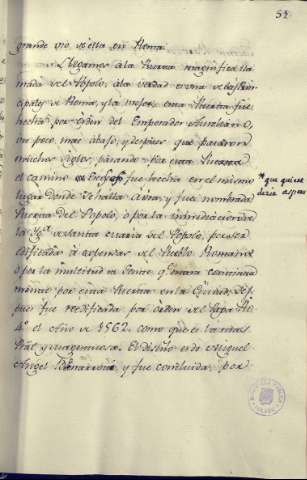 52
grande vio esta en Roma.
Llegamos á la Puerta magnifica lla
mada del Popolo, á la verdad es una de las Prin
cipales de Roma, y la mejor. esta Puerta fue
hecha por orden del Emperador Aureliano,
un poco mas abajo, y despues que pasaron
muchos siglos, parando Por esta Puerta
el camino fue hecha en el mismo
lugar donde se halla aora, y fue nombrada
Puerta del Popolo ó por la inmediacion de
la Yg.ª de Santa Maria del Popolo, por ser
edificada á expensas del Pueblo Romano
ó por la multitud de Gente q.e entra continua
mente por esta Puerta en la Ciudad, des
pues fue reedificada por orden del Papa Pio
4.º el año de 1562. como que es la mas
Pral. y magestuosa. El diseño es de Miguel
Angel Bonarrota, y fue concluida por
* que quiere
decir aspero